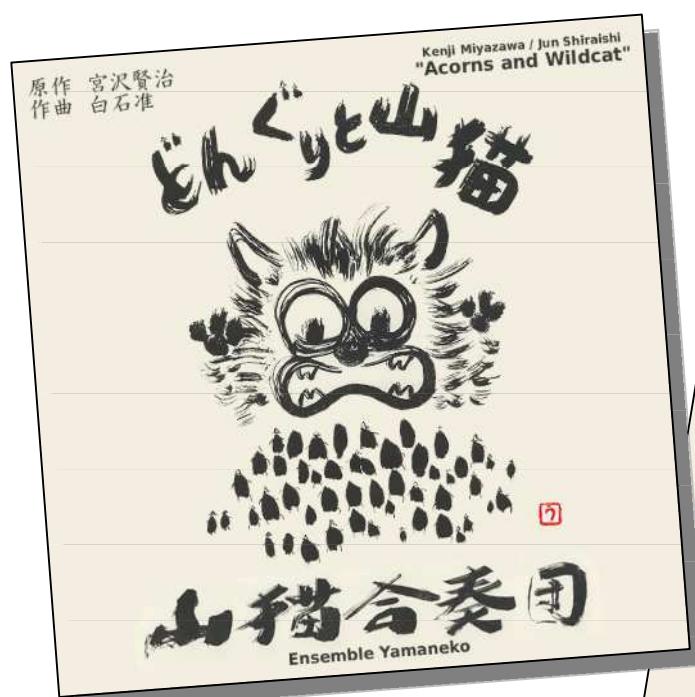 原作 宮沢賢治
作曲 白石准
Kenji Miyazawa / Jun Shiraishi
"Acorns and Wildcat"
どんぐりと山猫
う
山猫合奏団
Ensemble Yamaneko